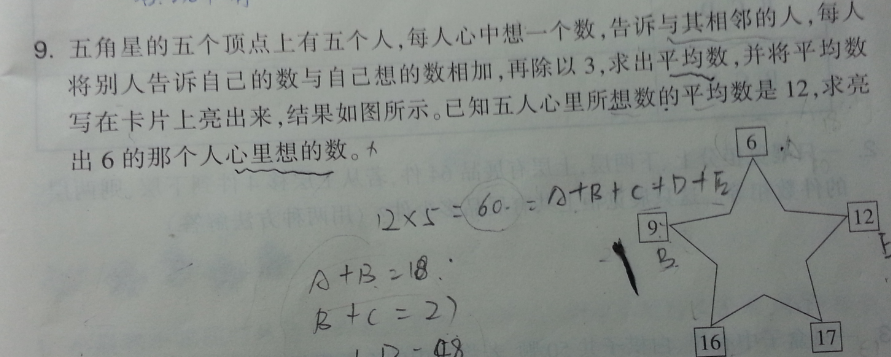 9. 五角星的五个顶点上有五个人,每人心中想一个数,告诉与其相邻的人,每人
将别人告诉自己的数与自己想的数相加,再除以3,求出平均数,并将平均数
写在卡片上亮出来,结果如图所示。已知五人心里所想数的平均数是12,求亮
出6的那个人心里想的数。
6
12×5=60.=A+B+C+D+E
9
12
B
E
A+B=18
B+C=27
D=48
16
17